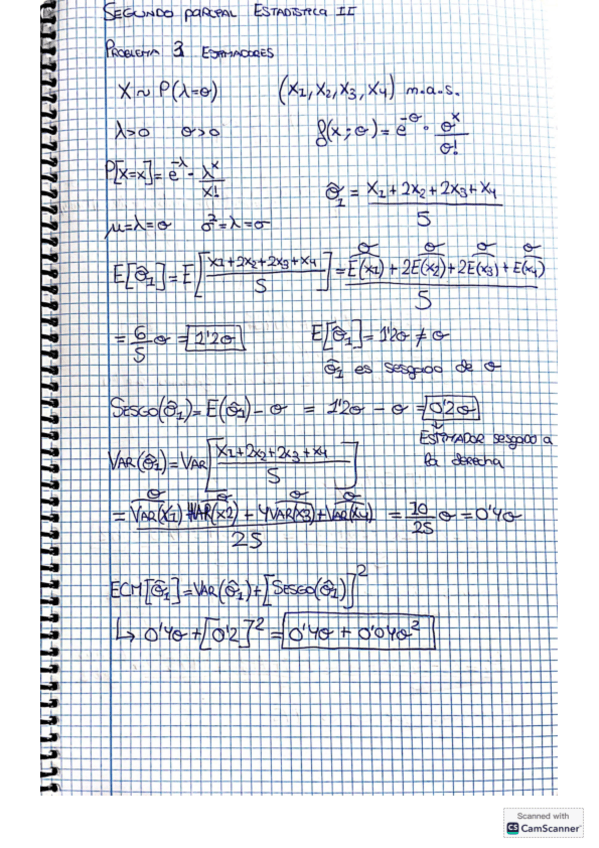 SEGUNDO PARCIAL ESTADÍSTICA II
PROBLEMA 3 ESTIMADORES
X ~ P(λ=θ) (X1, X2, X3, X4) m.a.s.
λ>0 θ>0 f(x;θ) = e^-θ · θ^x / θ!
P[X=x] = e^-λ · λ^x / x!
θ̂1 = X1+2X2+2X3+X4 / 5
μ=λ=θ σ²=λ=θ
E[θ̂1] = E[X1+2X2+2X3+X4 / 5] = E(X1) + 2E(X2) + 2E(X3) + E(X4) / 5
θ θ θ θ
= 6/5 θ = 1'2θ E[θ̂1] = 1'2θ ≠ θ
θ̂1 es sesgado de θ
SESGO(θ̂1) = E(θ̂1) - θ = 1'2θ - θ = 0'2θ
ESTIMADOR sesgado a
la derecha
VAR(θ̂1) = VAR[X1+2X2+2X3+X4 / 5]
θ θ θ θ
= VAR(X1) + 4VAR(X2) + 4VAR(X3) + VAR(X4) / 25 = 10/25 θ = 0'4θ
ECM[θ̂1] = VAR(θ̂1) + [SESGO(θ̂1)]²
↳ 0'4θ + [0'2]² = 0'4θ + 0'04θ²
Scanned with
CS CamScanner